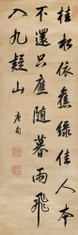 桂依舊綠佳人本
不還只應隨暮雨飛
入九疑山
唐句